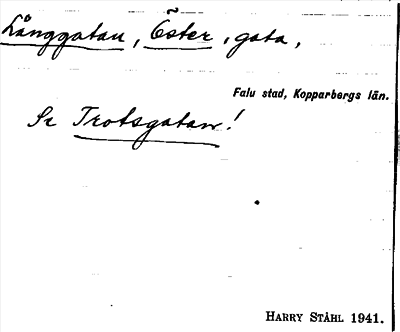 Långgatan, Öster, gata,
Falu stad, Kopparbergs län.
Se Trotsgatan!
HARRY STÅHL 1941.